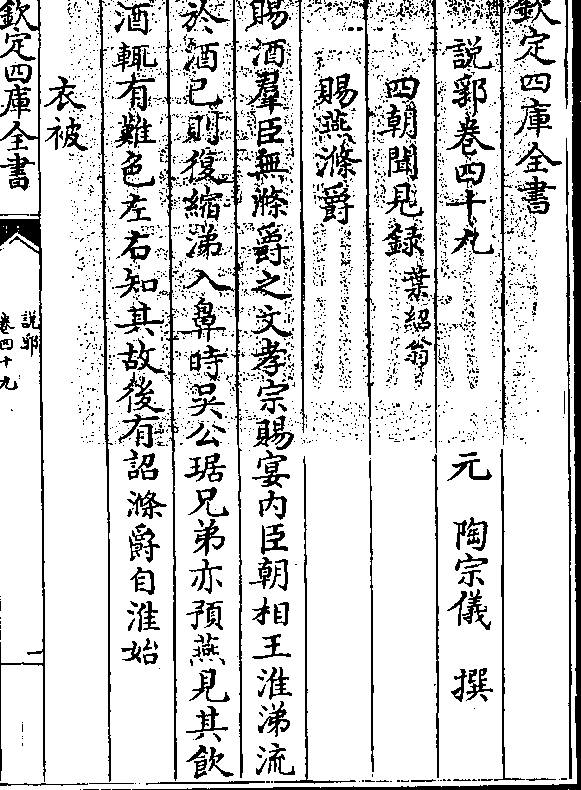 欽定四庫全書
說郛卷四十九
元 陶宗儀 撰
四朝聞見録 葉紹翁
賜燕滌爵
賜酒羣臣無滌爵之文孝宗賜宴内臣朝相王淮涕流
於酒已則復縮涕入鼻時吳公琚兄弟亦預燕見其飲
酒輒有難色左右知其故後有詔滌爵自淮始
衣被
欽定四庫全書
說郛
卷四十九
一